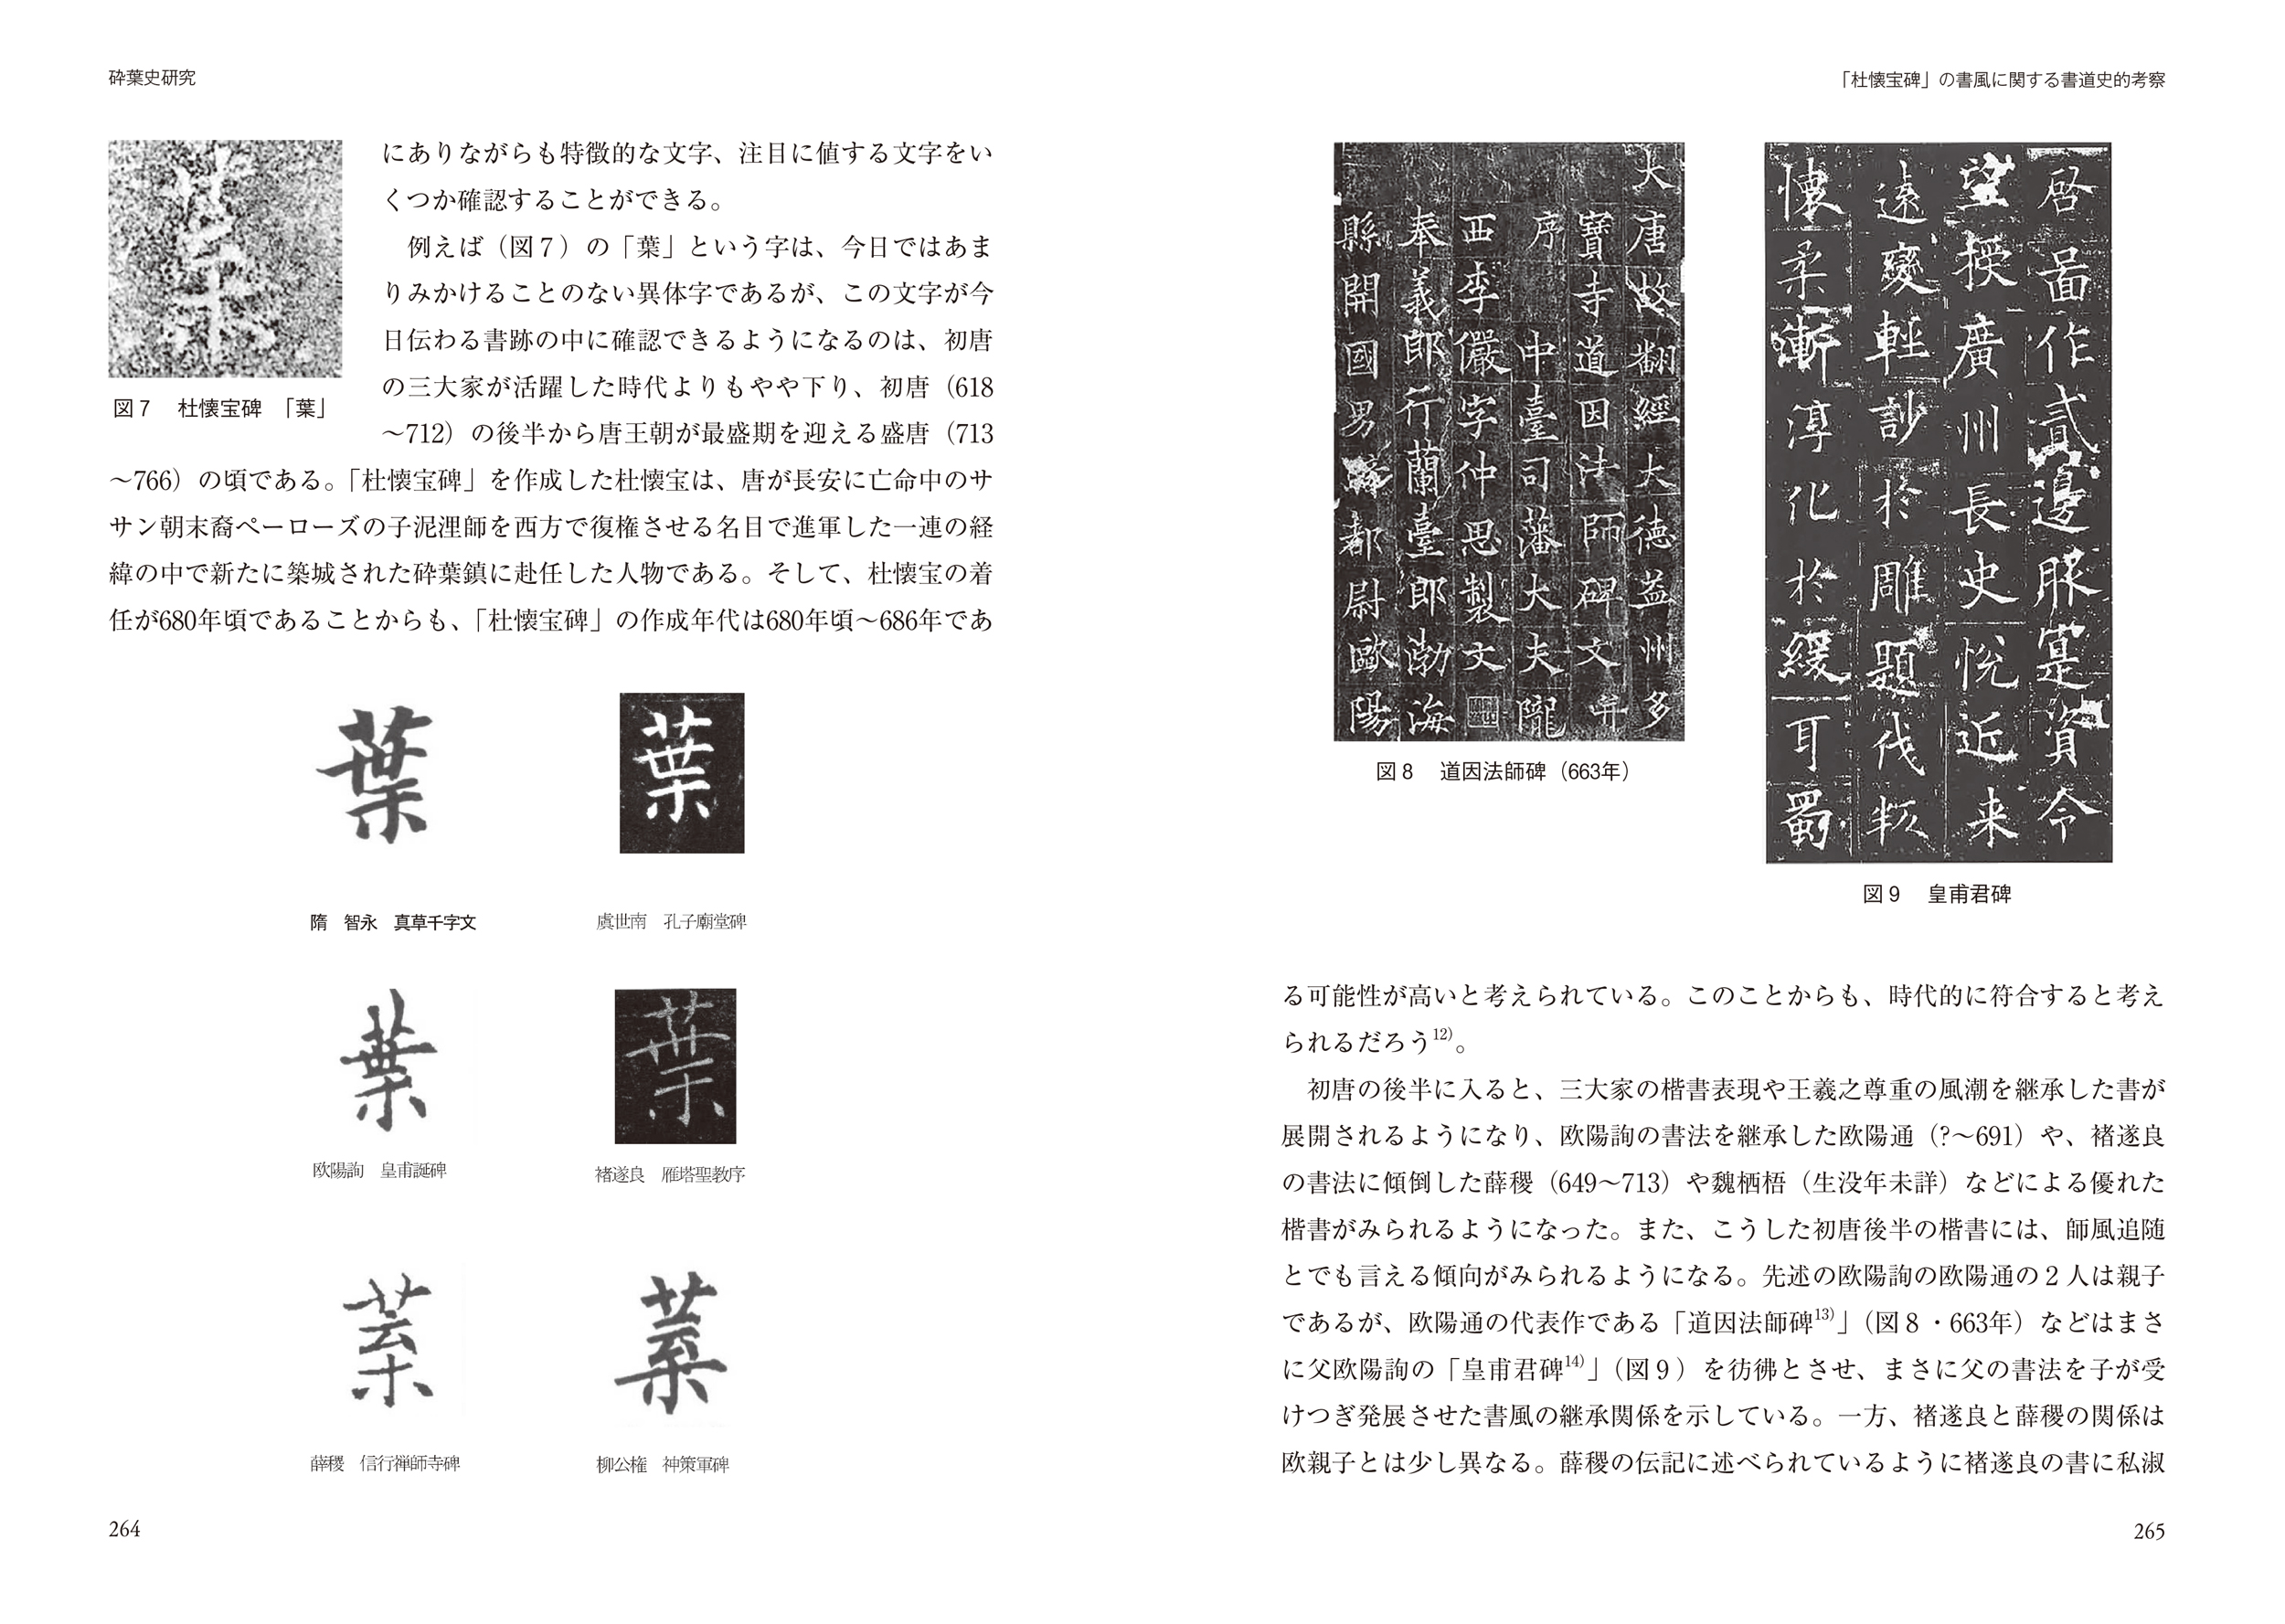 砕葉史研究
にありながらも特徴的な文字、注目に値する文字をい
くつか確認することができる。
例えば（図7）の「葉」という字は、今日ではあま
りみかけることのない異体字であるが、この文字が今
日伝わる書跡の中に確認できるようになるのは、初唐
の三大家が活躍した時代よりもやや下り、初唐（618
～712）の後半から唐王朝が最盛期を迎える盛唐（713
～766）の頃である。「杜懐宝碑」を作成した杜懐宝は、唐が長安に亡命中のサ
サン朝末裔ペーローズの子泥浬師を西方で復権させる名目で進軍した一連の経
緯の中で新たに築城された砕葉鎮に赴任した人物である。そして、杜懐宝の着
任が680年頃であることからも、「杜懐宝碑」の作成年代は680年頃～686年であ
図7　杜懐宝碑　「葉」
葉
葉
隋　智永　真草千字文
虞世南　孔子廟堂碑
葉
葉
欧陽詢　皇甫誕碑
褚遂良　雁塔聖教序
薛稷　信行禅師寺碑
柳公権　神策軍碑
264
「杜懐宝碑」の書風に関する書道史的考察
大唐故翻經大德益州多
寶寺道因法師碑文并
序　中臺司藩大夫隴
西李儼字仲思製文
奉義郎行蘭臺郎渤海
縣開國男騎都尉歐陽
図8　道因法師碑（663年）
啓啚作貳邊服寔資令
望授廣州長史悅近来
遠變輕訬於雕題伐叛
懷柔漸淳化於緩耳蜀
図9　皇甫君碑
る可能性が高いと考えられている。このことからも、時代的に符合すると考え
られるだろう12)。
初唐の後半に入ると、三大家の楷書表現や王羲之尊重の風潮を継承した書が
展開されるようになり、欧陽詢の書法を継承した欧陽通（?～691）や、褚遂良
の書法に傾倒した薛稷（649～713）や魏栖梧（生没年未詳）などによる優れた
楷書がみられるようになった。また、こうした初唐後半の楷書には、師風追随
とでも言える傾向がみられるようになる。先述の欧陽詢の欧陽通の2人は親子
であるが、欧陽通の代表作である「道因法師碑13)」（図8・663年）などはまさ
に父欧陽詢の「皇甫君碑14)」（図9）を彷彿とさせ、まさに父の書法を子が受
けつぎ発展させた書風の継承関係を示している。一方、褚遂良と薛稷の関係は
欧親子とは少し異なる。薛稷の伝記に述べられているように褚遂良の書に私淑
265